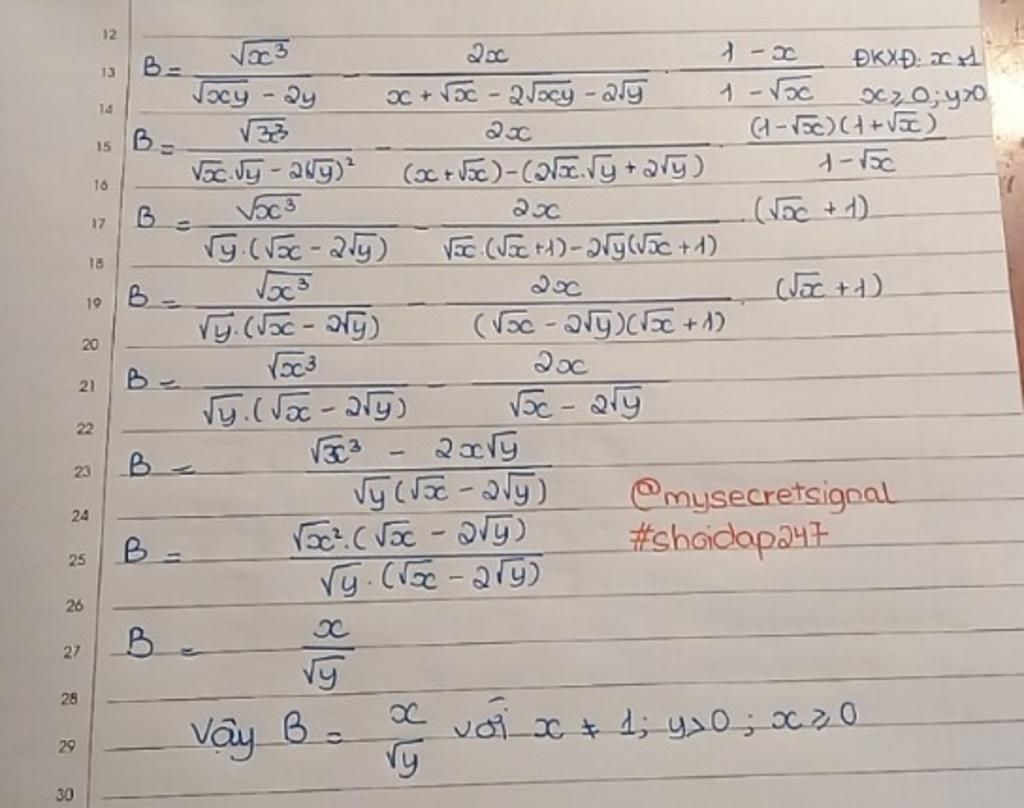 12
13 B = √x³ / (√xy - 2y) - 2x / (x + √x - 2√xy - 2√y) · (1 - x) / (1 - √x) ĐKXĐ: x ≠ 1
14 x ≥ 0; y > 0
15 B = √x³ / (√x.√y - 2(√y)²) - 2x / ((x + √x) - (2√x.√y + 2√y)) · (1-√x)(1+√x) / (1-√x)
16
17 B = √x³ / (√y.(√x - 2√y)) - 2x / (√x.(√x+1) - 2√y(√x+1)) · (√x + 1)
18
19 B = √x³ / (√y.(√x - 2√y)) - 2x / ((√x - 2√y)(√x + 1)) · (√x + 1)
20
21 B = √x³ / (√y.(√x - 2√y)) - 2x / (√x - 2√y)
22
23 B = (√x³ - 2x√y) / (√y(√x - 2√y))
@mysecretsignal
24
#shoidap247
25 B = √x².(√x - 2√y) / (√y.(√x - 2√y))
26
27 B = x / √y
28
29 Vậy B = x / √y với x ≠ 1; y>0; x ≥ 0
30